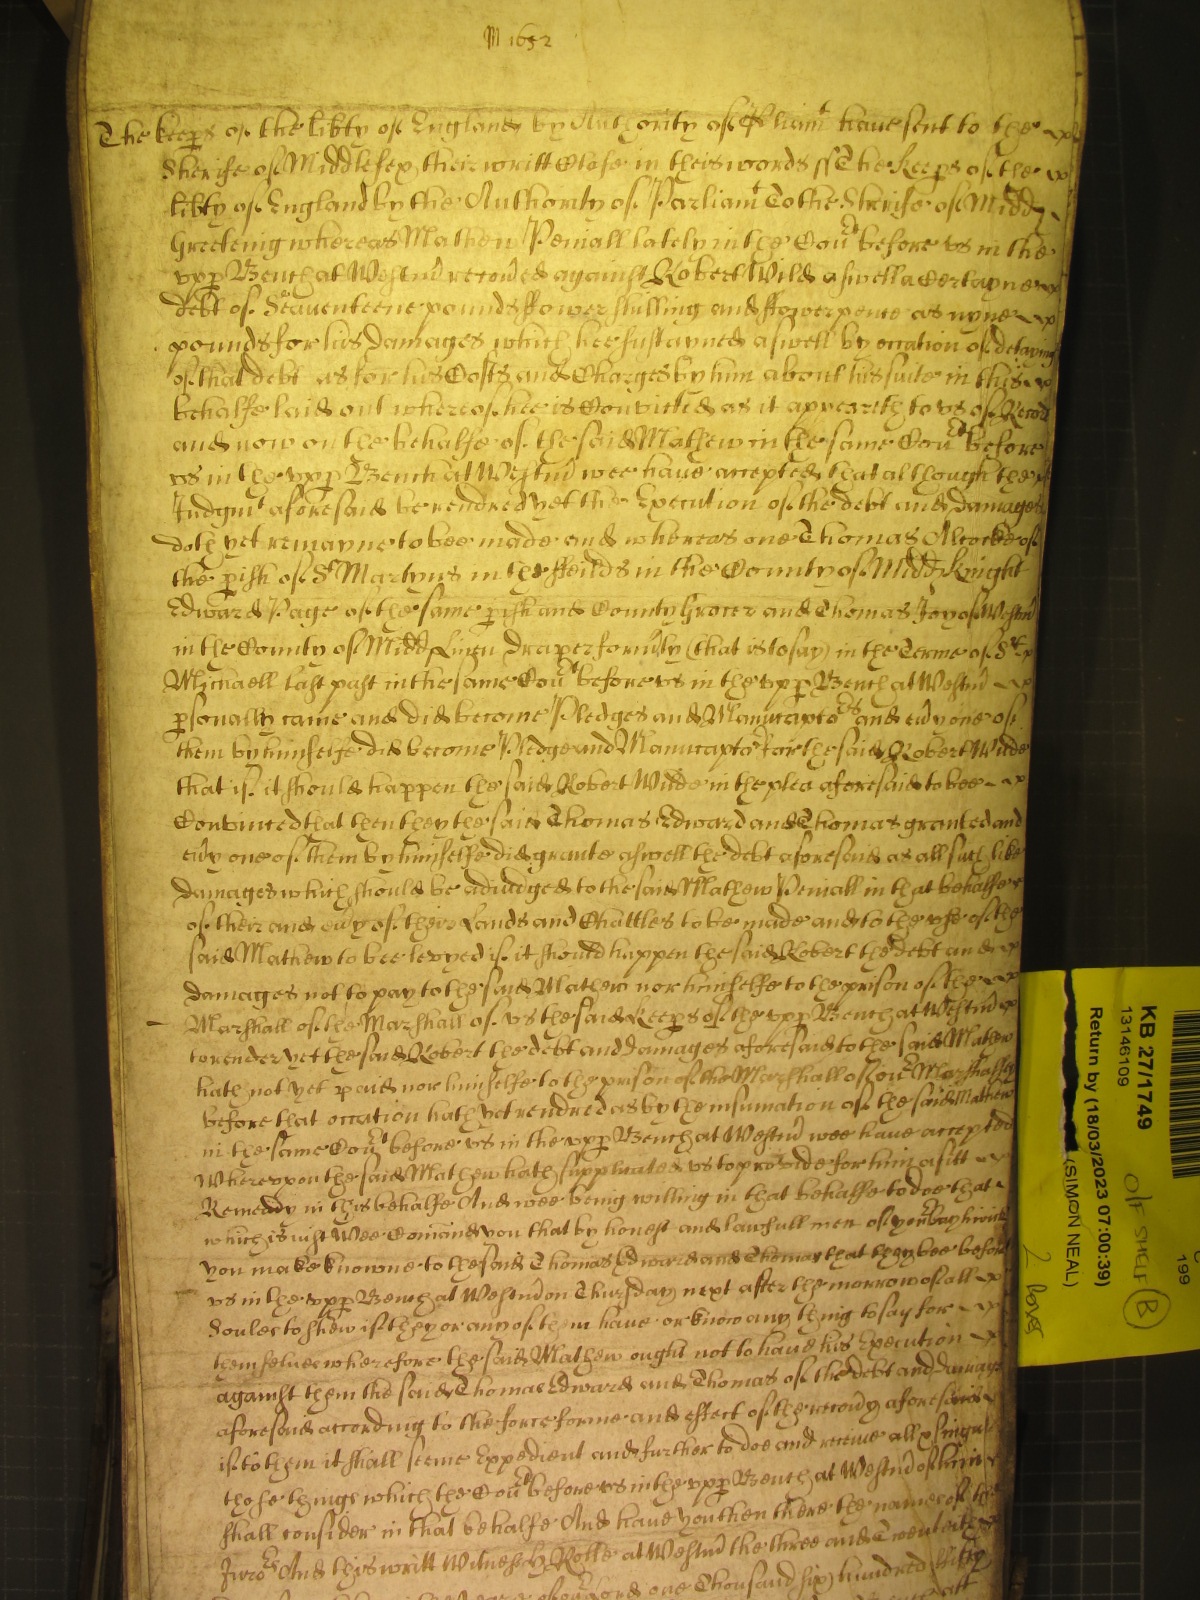 M 1652
The keeps of the libty of England by Authority of Pliamt have sent to the
Sherife of Middlesex their writt Close in theis words ss The Keeps of the
libty of England by the Authority of Parliamt To the Sherife of Midd
Greeteing whereas Mathew Peniall lately in the Court before us in the
upp Bench at Westm recoved against Robert Wild aswell a Certayne
debt of Seaventeene pounds ffower shilling and ffowerpence as nyne
pounds for his damages which hee sustayned aswell by occation of detayning
of that debt as for his Costs and Charges by him about his suite in this
behalfe laid out whereof hee is Convicted as it appeareth to us of Record
and now on the behalfe of the said Mathew in the same Court before
us in the upp Bench at Westm wee have accepted that although the
Judgmt aforesaid be rendred yet the Execution of the debt and damages
doth yet remayne to bee made and whereas one Thomas Alcocke of
the pish of St Martyns in the ffeilds in the County of Midd Knight
Edward Page of the same pish and County Grocer and Thomas Joy of Westm
in the County of Midd Linen draper formly (that is to say) in the Terme of St
Michaell last past in the same Court before us in the upp Bench at Westm
psonally came and did become Pledges and Manucaptors and evy one of
them by himselfe did become Pledge and Manucaptor for the said Robert Wilde
that if it should happen the said Robert Wilde in the plea aforesaid to bee
Convinced that then they the said Thomas Edward and Thomas granted and
evy one of them by himselfe did grante aswell the debt aforesaid as all such like
damages which should be adiudged to the said Mathew Peniall in that behalfe
of their and evy of their Lands and Chattles to be made and to the use of the
said Mathew to bee levyed if it should happen the said Robert the debt and
damages not to pay to the said Mathew nor himselfe to the prison of the
Marshall of the Marshall of us the said Keeps of the upp Bench at Westm
to render yet the said Robert the debt and damages aforesaid to the said Mathew
hath not yet paid nor himselfe to the prison of the Marshall of our Marshalsey
before that occation hath yet rendred as by the insumation of the said Mathew
in the same Court before us in the upp Bench at Westm wee have accepted
Whereupon the said Mathew hath supplicated us to provide for him a fitt
Remeddy in this behalfe And wee being willing in that behalfe to doe that
which is iust Wee Comand you that by honest and lawfull men of your Baylywick
you make knowne to the said Thomas Edward and Thomas that they bee before
us in the upp Bench at Westm on Thursday next after the morrow of all
Soules to shew if they or any of them have or know any thing to say for
themselves wherefore the said Mathew ought not to have his Execution
against them the said Thomas Edward and Thomas of the debt and damages
aforesaid according to the force forme and effect of the recovy aforesaid
if to them it shall seeme Expedient and further to doe and receive all & singuler
those things which the Court before us in the upp Bench at Westm of them
shall consider in that behalfe And have you then there the names of the
Jurors And this writt Witnes H Rolle at Westm the three and Twentieth
one Thousand six hundred fifty
KB 27/1749
13146109
Return by (18/03/2023 07:00:39)
(SIMON NEAL)
199
O/F SHELF B
2 boxes